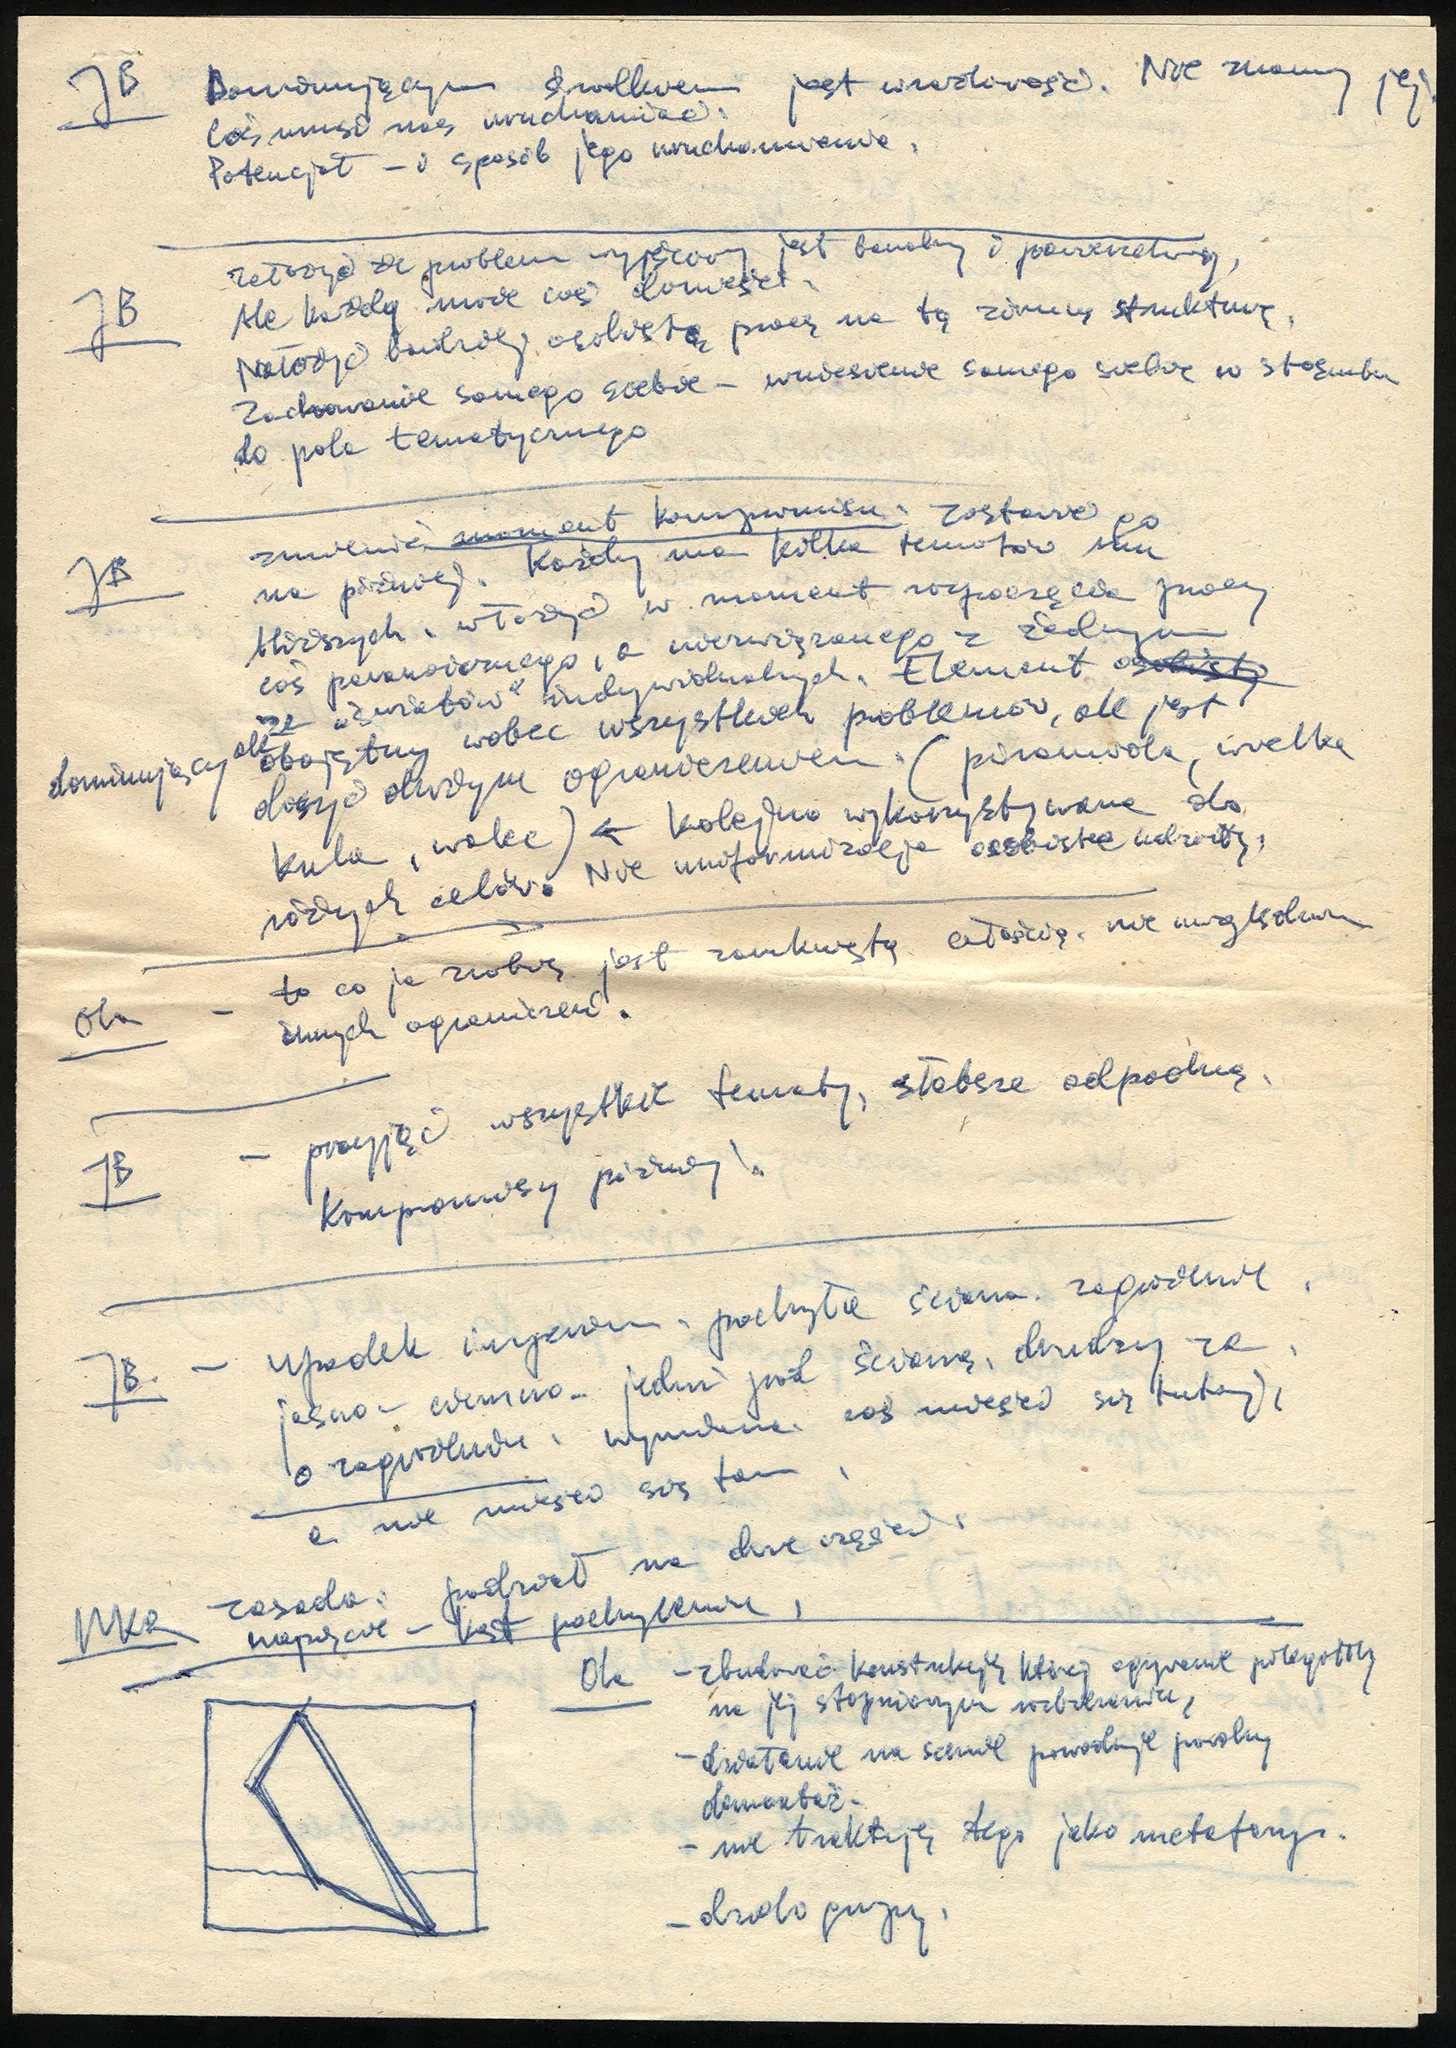 JB Dominującym środkiem jest wrażliwość. Nie znamy jej.
Coś musi nas uruchamiać.
Potencjał – i sposób jego uruchomienia.
założyć że problem wyjściowy jest banalny i powszechny,
JB Ale każdy może coś donieść.
Nałożyć bardziej osobistą pracę na tą zimną strukturę.
Zachowanie samego siebie – wniesienie samego siebie w stosunku
do pola tematycznego
zmienić moment kompromisu. zostawić go
JB na później. Każdy ma kilka tematów mu
bliższych. włożyć w moment rozpoczęcia pracy
coś paranoicznego, a niezwiązanego z żadnym
ze "światów" indywidualnych. Element osobisty
dominujący ale obojętny wobec wszystkich problemów, ale jest
dosyć dużym ograniczeniem. (piramida, wielka
kula, walec) ← kolejno wykorzystywane do
różnych celów. Nie uniformizacja osobiste
Ola – to co ja zrobię jest zamkniętą całością. nie
innych ograniczeń.
JB – przyjąć wszystkie tematy, słabsze odpadną.
Kompromisy później.
JB – upadek imperium. pochyła ściana. zagrożenie.
jasno – ciemno – jedni pod ścianą, drudzy za.
o zagrożeniu. wymiana. coś mieści się tutaj,
a nie mieści się tam.
MKR zasada: podział na dwie części.
napięcie – kąt pochylenia.
Ola – zbudować konstrukcję której ożywienie polegałoby
na jej stopniowym rozbieraniu,
– działanie na scenie powoduje powolny
demontaż.
– nie traktuję tego jako metafory.
– dzieło grupy.